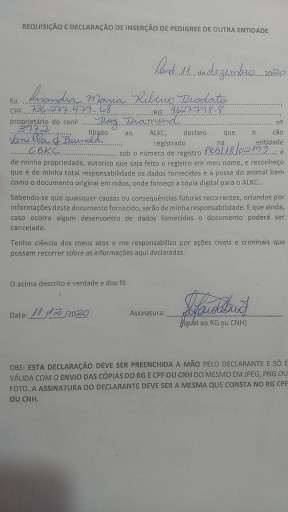 REQUISIÇÃO E DECLARAÇÃO DE INSERÇÃO DE PEDIGREE DE OUTRA ENTIDADE
11 de dezembro 2020
Eu Maria Ribeiro
CPF RG
proprietário do canil Dog Diamond nº
filiado ao ALKC, declaro que o cão
registrado na entidade
CBKC sob o número de registro é
de minha propriedade, autorizo que seja feito o registro em meu nome, e reconheço
que é de minha total responsabilidade os dados fornecidos e a posse do animal bem
como o documento original em mãos, onde forneço a cópia digital para o ALKC..
Sabendo-se que quaisquer causas ou consequências futuras recorrentes, oriundas por
informações deste documento fornecido, serão de minha responsabilidade. E que ainda,
caso ocorra algum desencontro de dados fornecidos o documento poderá ser
cancelado.
Tenho ciência dos meus atos e me responsabilizo por ações cíveis e criminais que
possam recorrer sobre as informações aqui declaradas.
O acima descrito é verdade e dou fé
Data: 11/12/2020 Assinatura:
(Igual ao RG ou CNH)
OBS: ESTA DECLARAÇÃO DEVE SER PREENCHIDA A MÃO PELO DECLARANTE E SÓ É
VÁLIDA COM O ENVIO DAS CÓPIAS DO RG E CPF OU CNH DO MESMO EM JPEG, PNG OU
FOTO. A ASSINATURA DO DECLARANTE DEVE SER A MESMA QUE CONSTA NO RG CPF
OU CNH.